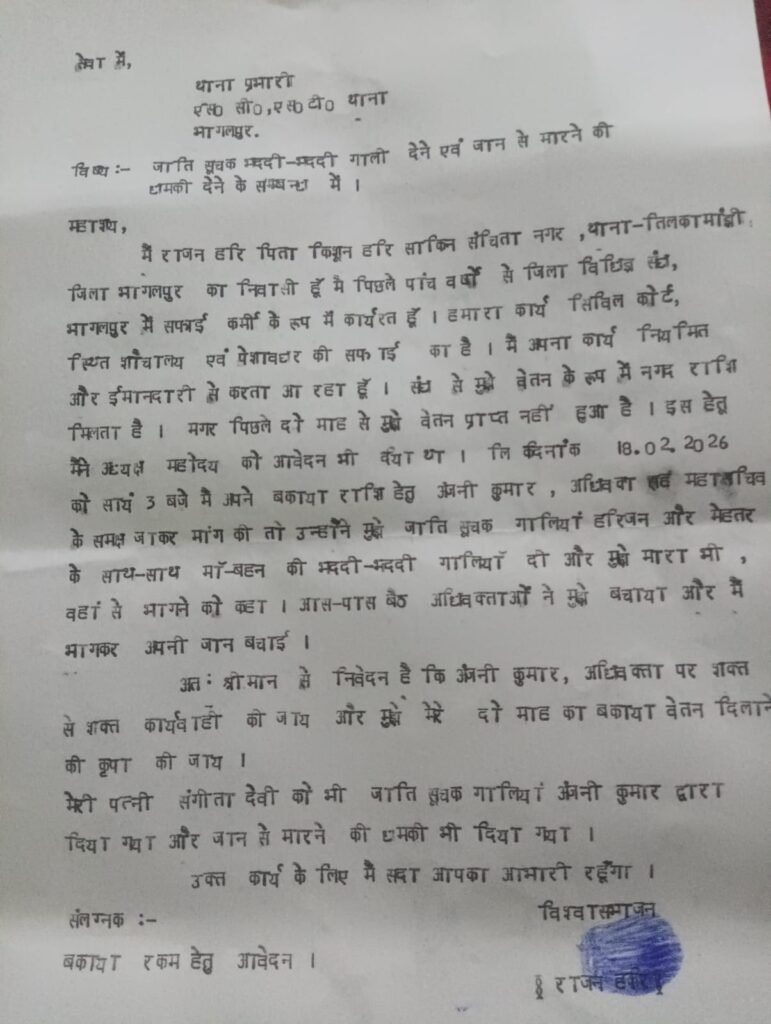 सेवा में,
थाना प्रभारी
एस0 सी0,एस0 टी0 थाना
भागलपुर.
विषय :- जाति सूचक भददी-भददी गाली देने एवं जान से मारने की
धमकी देने के सम्बन्ध में ।
महाशय,
मैं राजन हरि पिता किशून हरि साकिन संचिता नगर ,थाना-तिलकामांझी
जिला भागलपुर का निवासी हूँ मै पिछले पांच वर्षो से जिला विधिज्ञ संघ,
भागलपुर में सफाई कर्मी के रूप में कार्यरत हूँ । हमारा कार्य सिविल कोर्ट,
स्थित शौचालय एवं पेशावघर की सफाई का है । मैं अपना कार्य नियमित
और ईमानदारी से करता आ रहा हूँ । संघ से मुझे वेतन के रूप में नगद राशि
मिलता है । मगर पिछले दो माह से मुझे वेतन प्राप्त नहीं हुआ है । इस हेतू
मैंने अध्यक्ष महोदय को आवेदन भी था । 18.02.2026
को सायं 3 बजे मै अपने बकाया राशि हेतु अंजनी कुमार , अधिवक्ता एवं महासचिव
के समक्ष जाकर मांग की तो उन्होंने मुझे जाति सूचक गालियां हरिजन और मेहतर
के साथ-साथ माँ-बहन की भददी-भददी गालियाँ दी और मुझे मारा भी ,
वहां से भागने को कहा । आस-पास बैठे अधिवक्ताओं ने मुझे बचाया और मैं
भागकर अपनी जान बचाई ।
अतः श्रीमान से निवेदन है कि अंजनी कुमार, अधिवक्ता पर शक्त
से शक्त कार्यवाही की जाय और मुझे मेरे दो माह का बकाया वेतन दिलाने
की कृपा की जाय ।
मेरी पत्नी संगीता देवी को भी जाति सूचक गालियां अंजनी कुमार द्वारा
दिया गया और जान से मारने की धमकी भी दिया गया ।
उक्त कार्य के लिए मैं सदा आपका आभारी रहूँगा ।
विश्वासभाजन
संलग्नक :-
बकाया रकम हेतु आवेदन ।
राजन हरि